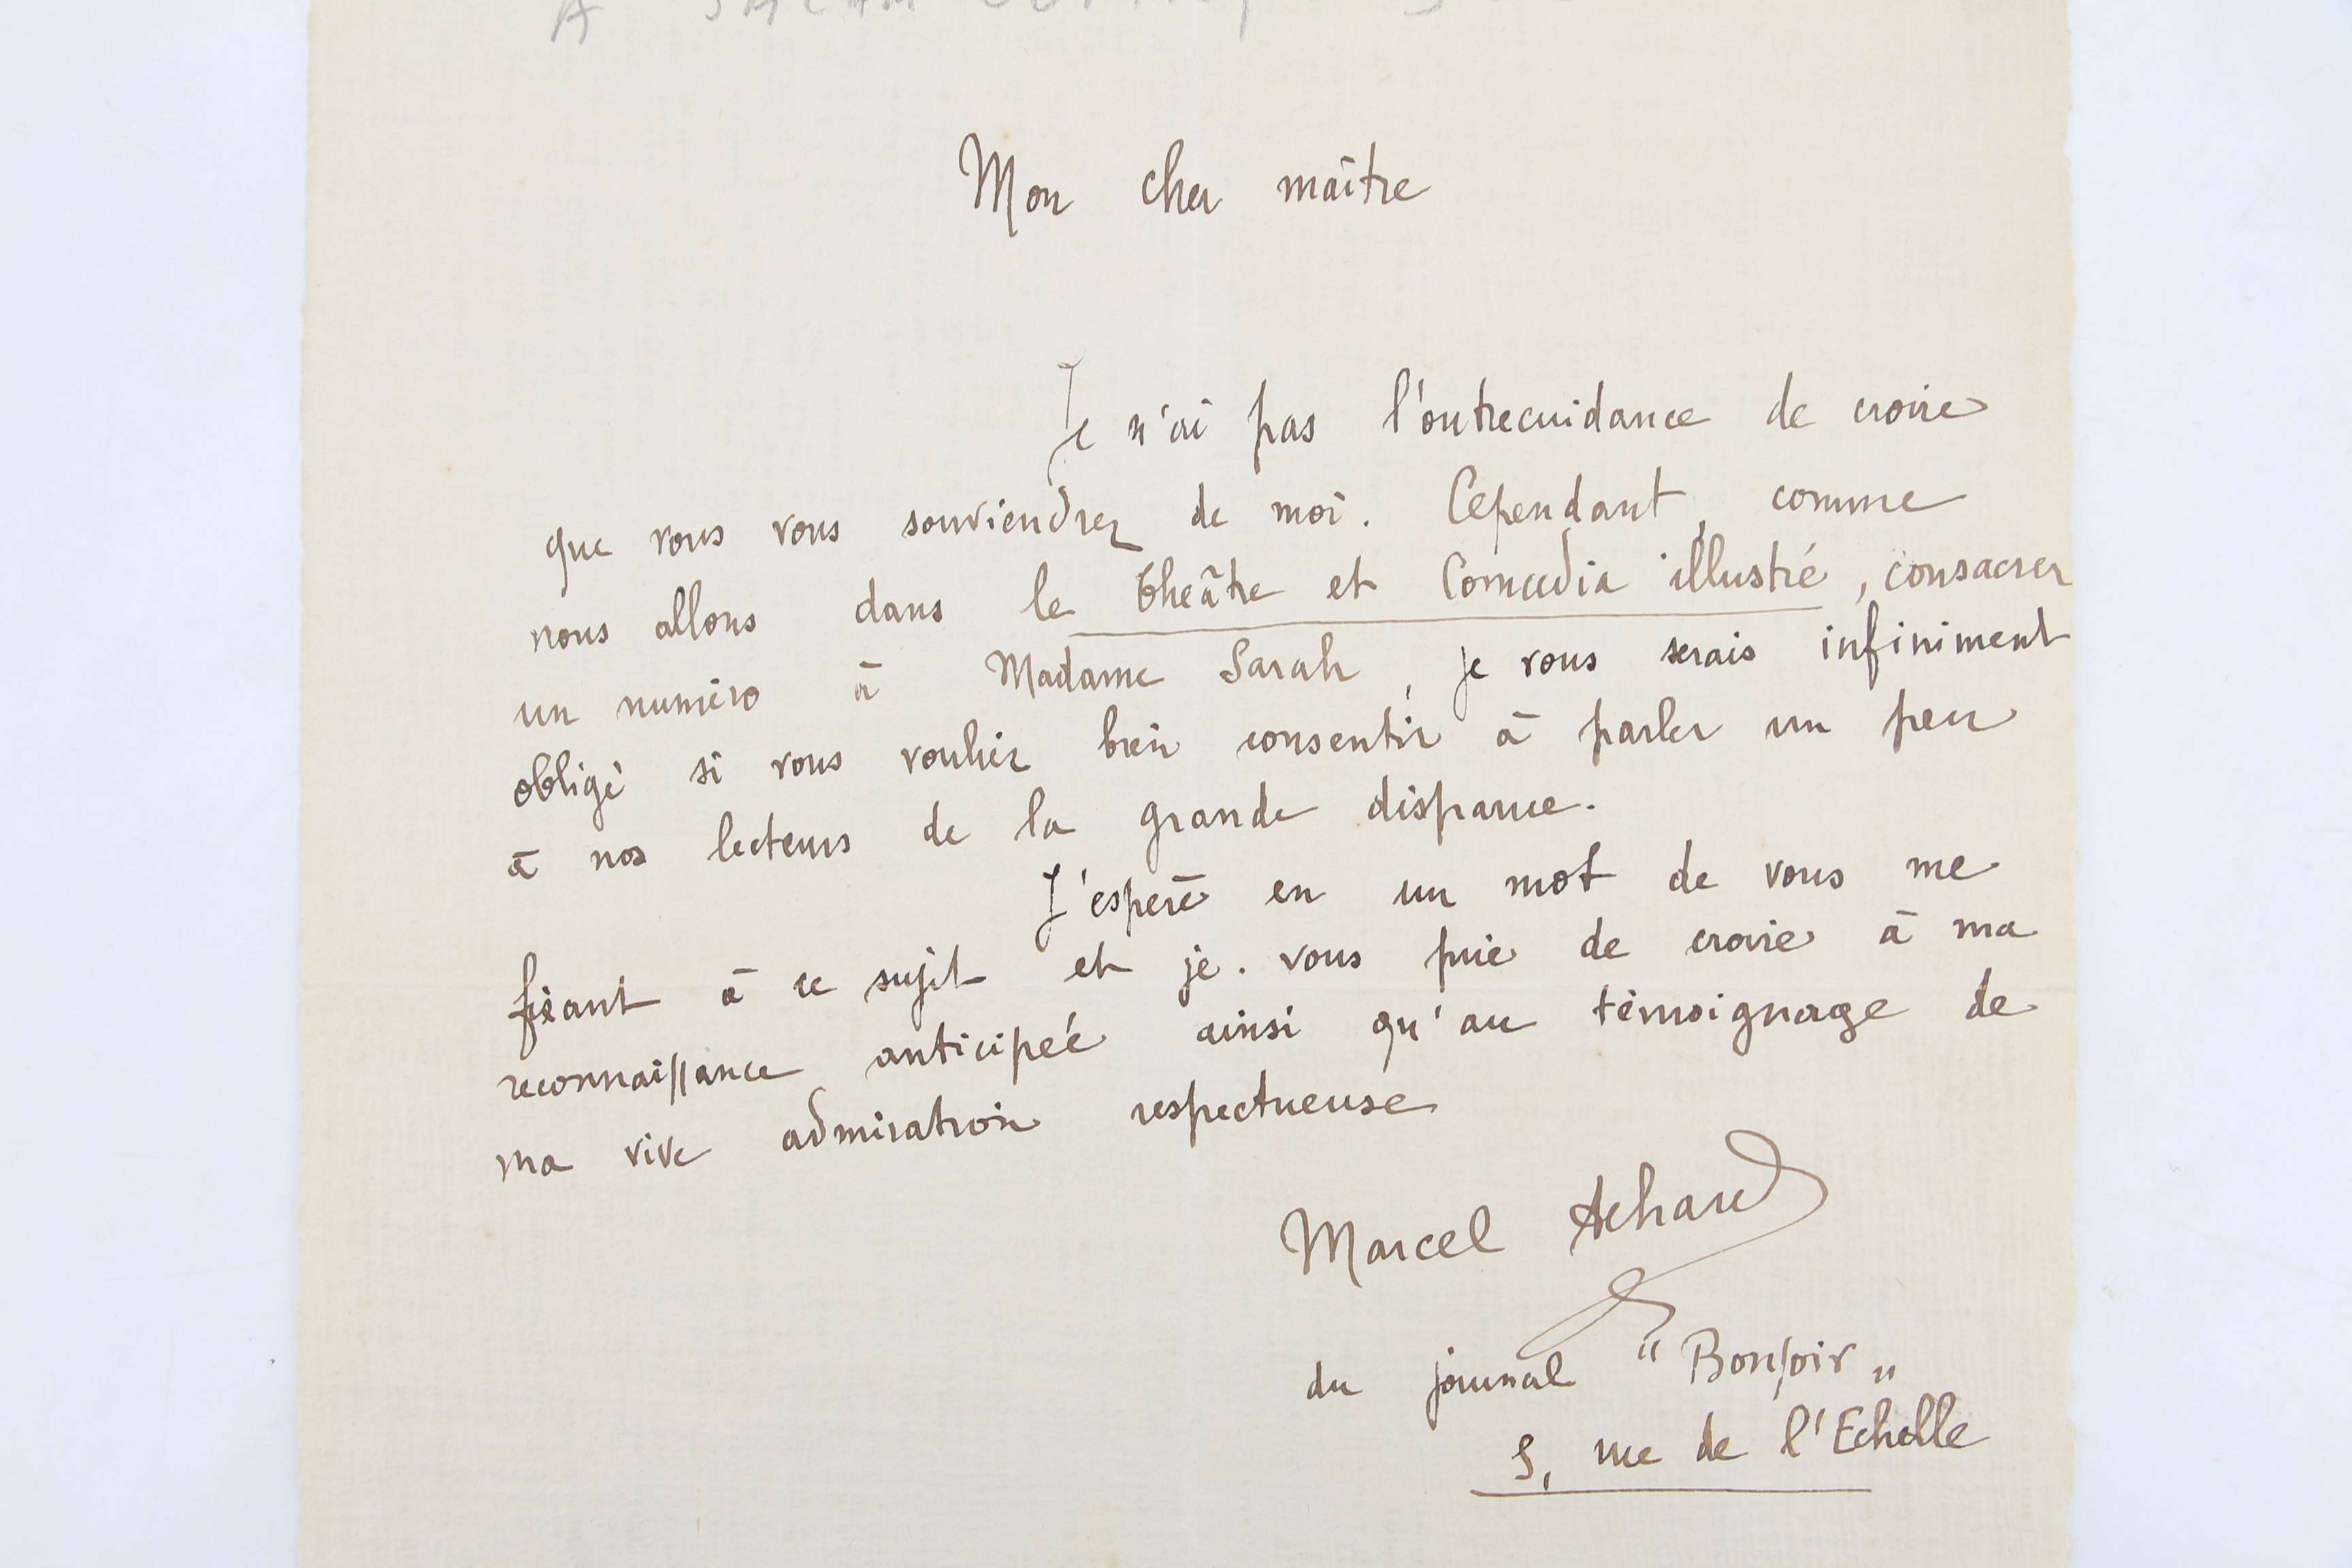 Mon cher maître
Je n'ai pas l'outrecuidance de croire
que vous vous souviendrez de moi. Cependant, comme
nous allons dans le théâtre et Comœdia illustré, consacrer
un numéro à Madame Sarah, je vous serais infiniment
obligé si vous vouliez bien consentir à parler un peu
à nos lecteurs de la grande disparue.
J'espère en un mot de vous me
fixant à ce sujet et je vous prie de croire à ma
reconnaissance anticipée ainsi qu'au témoignage de
ma vive admiration respectueuse
Marcel Achard
du journal "Bonsoir"
5, rue de l'Echelle